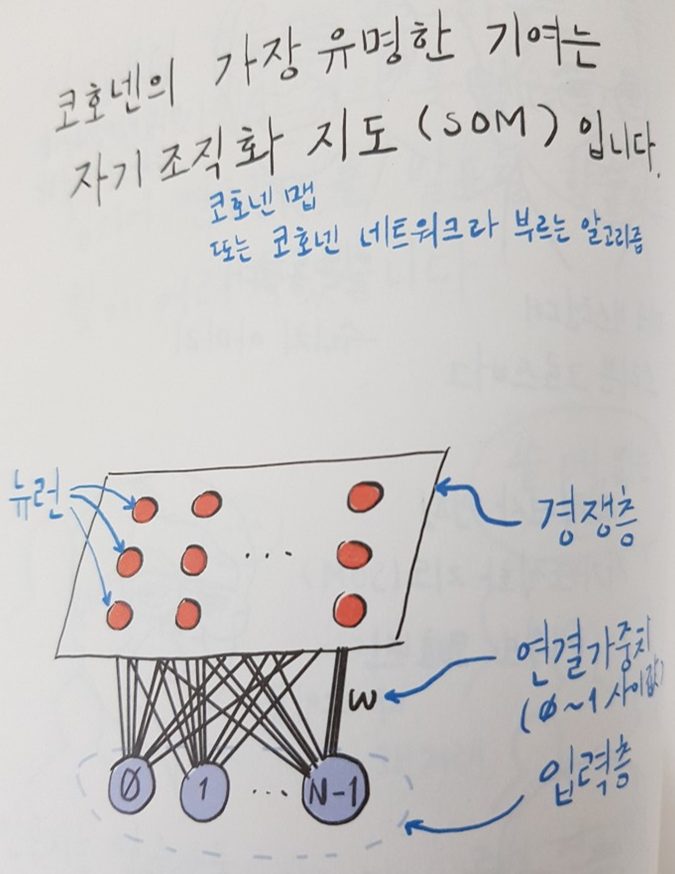 코호넨의 가장 유명한 기여는
자기 조직화 지도 (SOM) 입니다.
코호넨 맵
또는 코호넨 네트워크라 부르는 알고리즘
뉴런
...
경쟁층
연결가중치
(0~1 사이값)
W
0 1 ... N-1
입력층